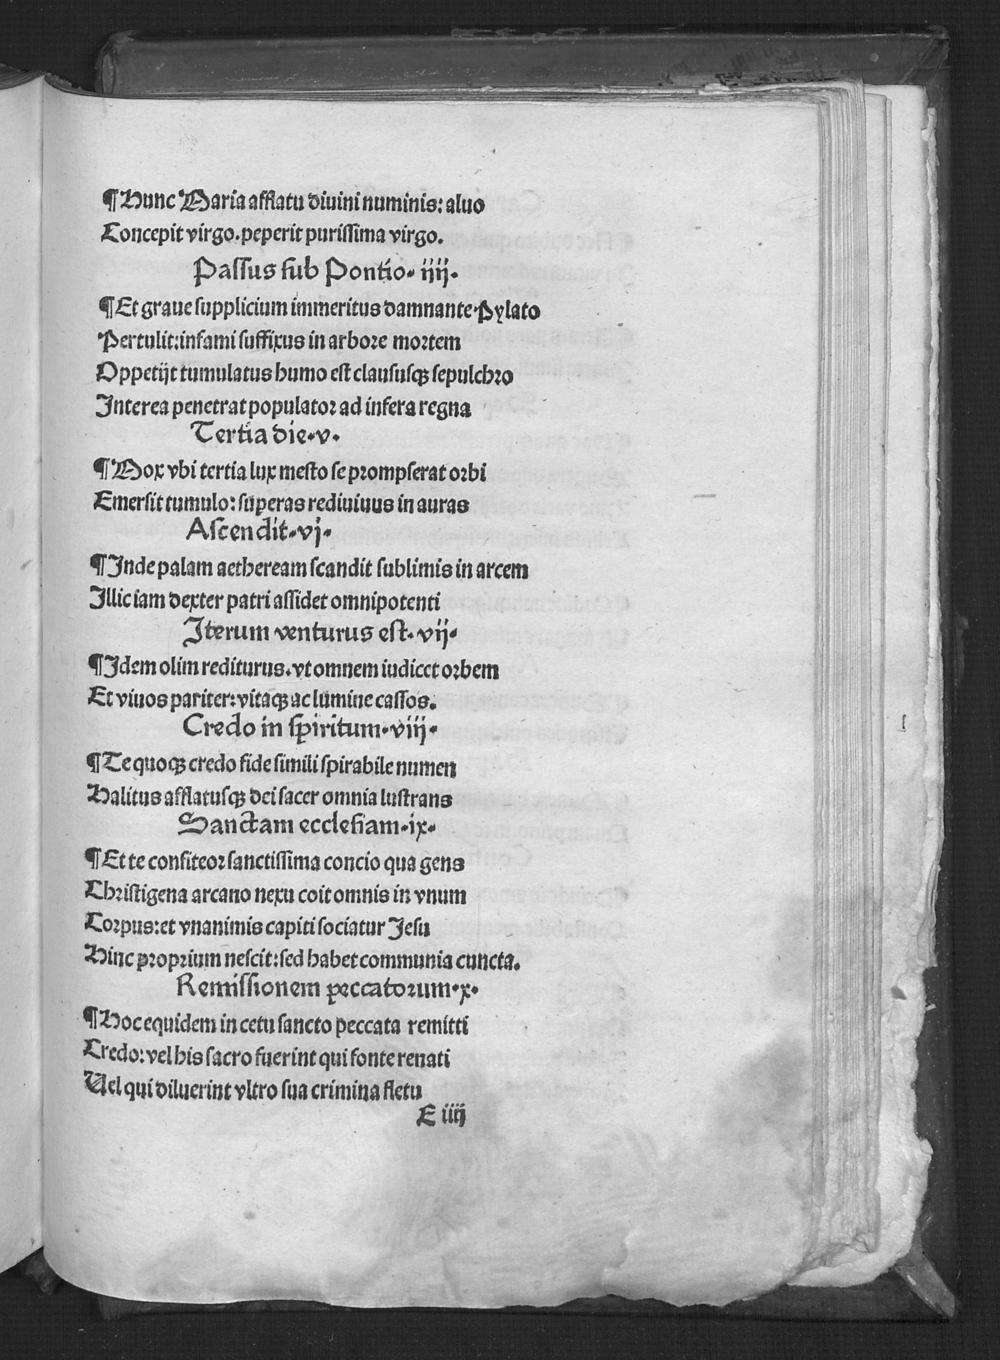 ¶Hunc Maria afflatu diuini numinis: aluo
Concepit virgo. peperit purissima virgo.
Passus sub Pontio. iiij.
¶Et graue supplicium immeritus damnante Pylato
Pertulit: infami suffixus in arbore mortem
Oppetijt tumulatus humo est claususqꝫ sepulchro
Interea penetrat populator ad infera regna
Tertia die. v.
¶Mox vbi tertia lux mesto se prompserat orbi
Emersit tumulo: superas rediuiuus in auras
Ascendit. vj.
¶Inde palam aetheream scandit sublimis in arcem
Illic iam dexter patri assidet omnipotenti
Iterum venturus est. vij.
¶Idem olim rediturus. vt omnem iudicet orbem
Et viuos pariter: vitaqꝫ ac lumine cassos.
Credo in spiritum. viij.
¶Te quoqꝫ credo fide simili spirabile numen
Halitus afflatusqꝫ dei sacer omnia lustrans
Sanctam ecclesiam. ix.
¶Et te confiteor sanctissima concio qua gens
Christigena arcano nexu coit omnis in vnum
Corpus: et vnanimis capiti sociatur Jesu
Hinc proprium nescit: sed habet communia cuncta.
Remissionem peccatorum. x.
¶Hoc equidem in cetu sancto peccata remitti
Credo: vel his sacro fuerint qui fonte renati
Uel qui diluerint vltro sua crimina fletu
E iiij